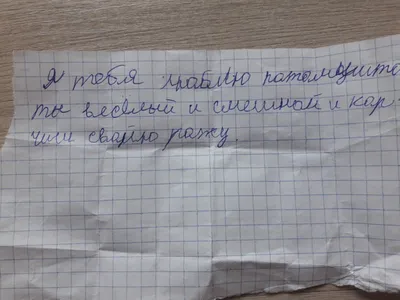 Я тебя люблю патамушто
ты весёлый и смешной и кар-
чиш сваю ражу.